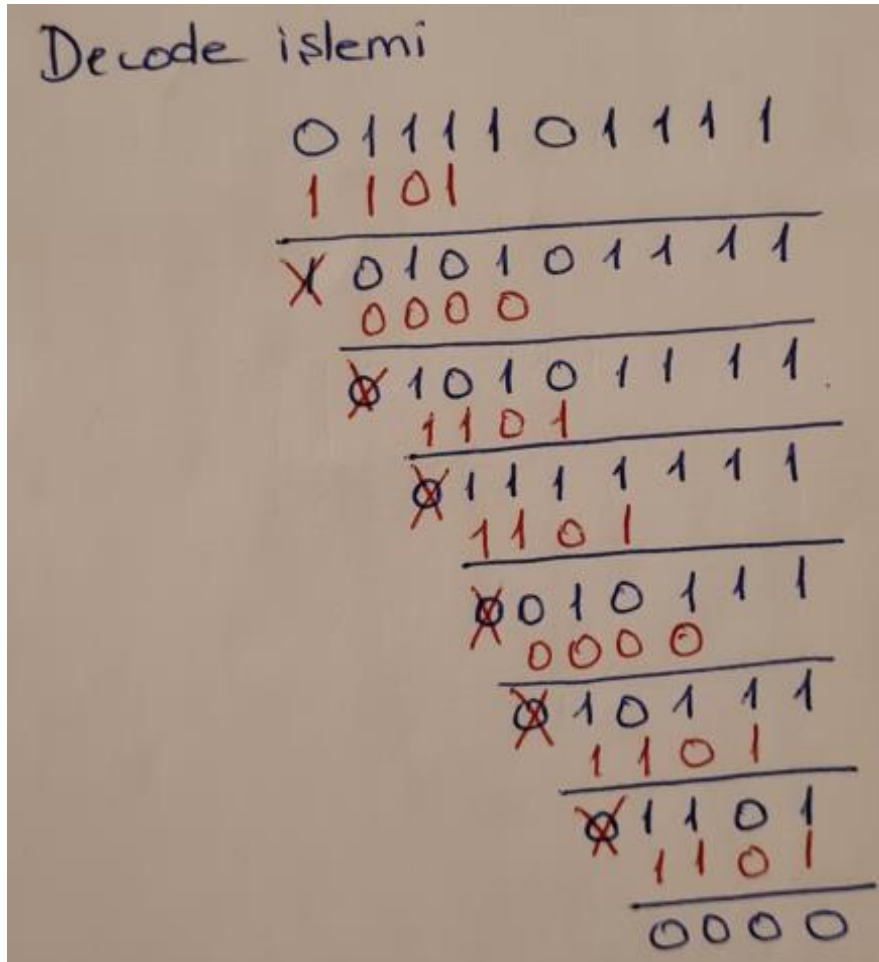 Decode işlemi
0 1 1 1 1 0 1 1 1 1
1 1 0 1
1 0 1 0 1 0 1 1 1 1
0 0 0 0
0 1 0 1 0 1 1 1 1
1 1 0 1
0 1 1 1 1 1 1 1
1 1 0 1
0 0 1 0 1 1 1
0 0 0 0
0 1 0 1 1 1
1 1 0 1
0 1 1 0 1
1 1 0 1
0 0 0 0